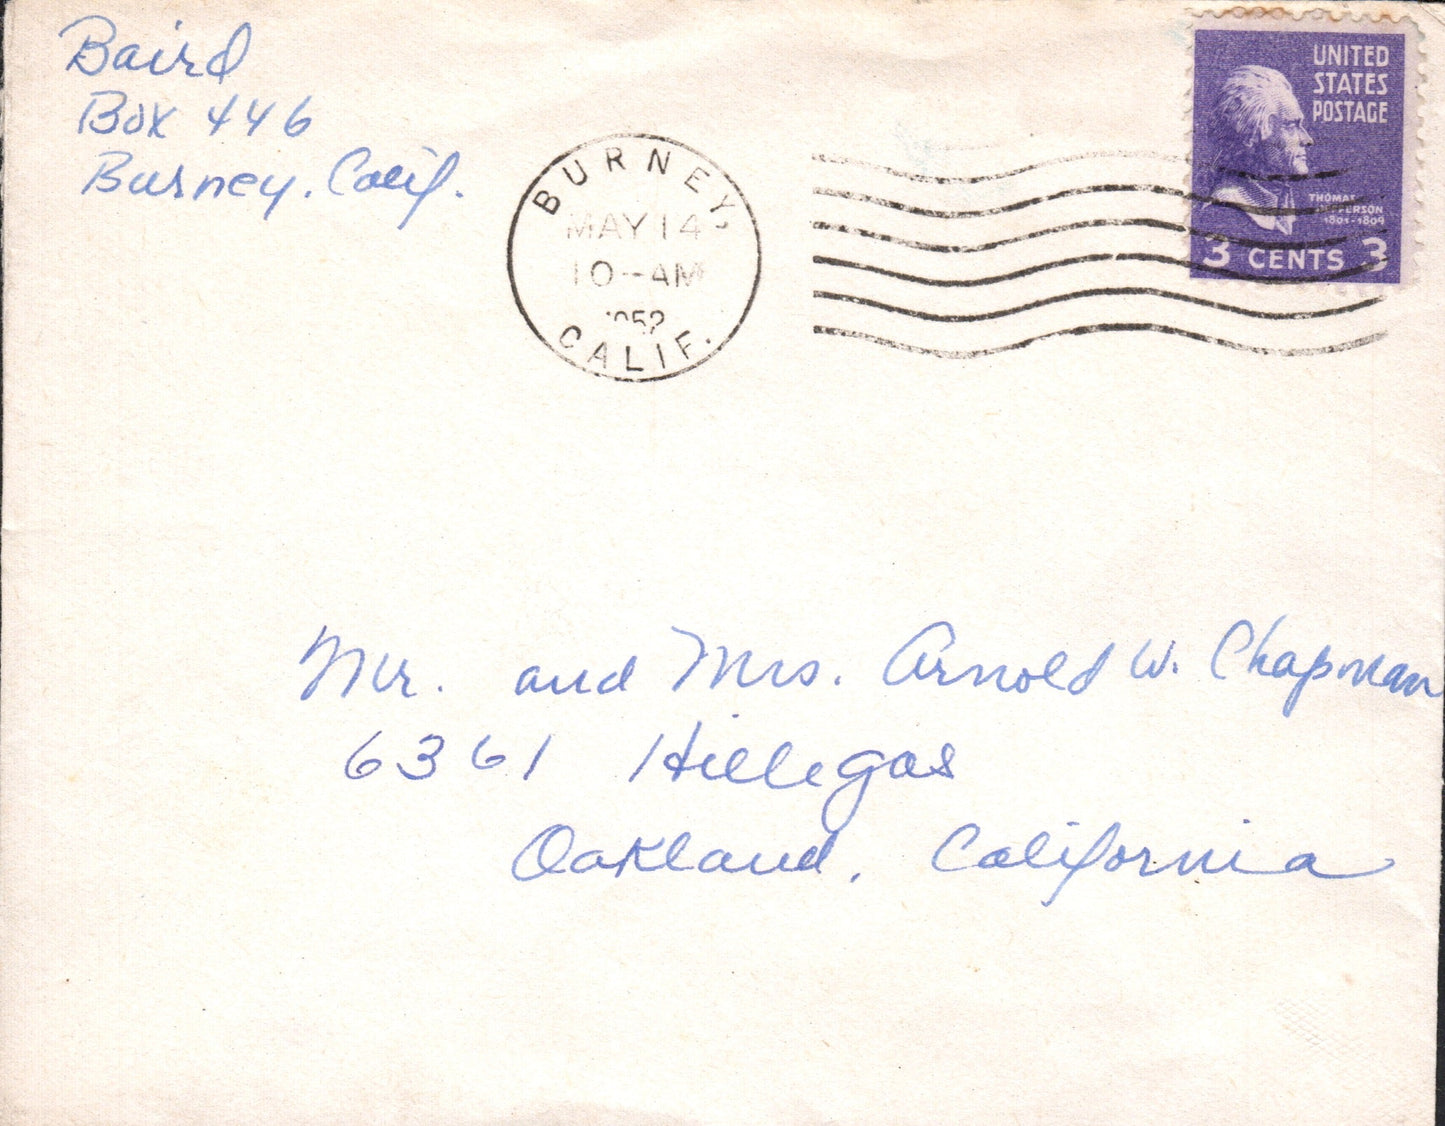 Baird
Box 446
Burney, Calif.
BURNEY,
MAY 14
10-AM
1952
CALIF.
UNITED
STATES
POSTAGE
THOMAS
JEFFERSON
1801-1809
3 CENTS 3
Mr. and Mrs. Arnold W. Chapman
6361 Hillegas
Oakland, California